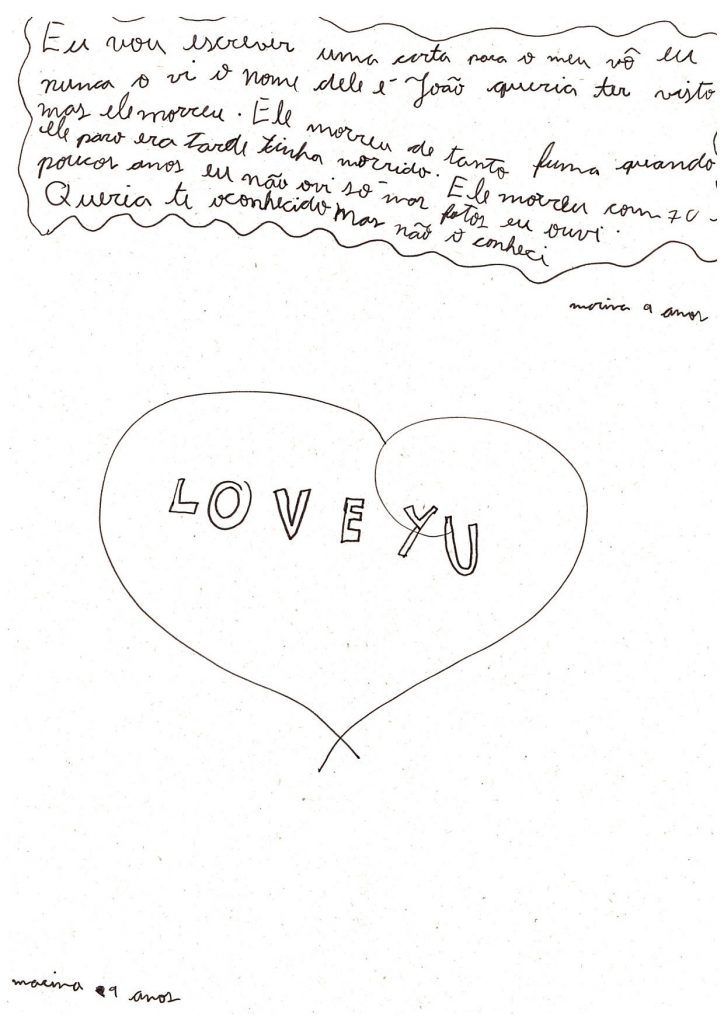 Eu vou escrever uma carta para o meu vô eu
nunca o vi o nome dele é João queria ter visto
mas ele morreu. Ele morreu de tanto fuma quando
ele paro era tarde tinha morrido. Ele morreu com 70
poucos anos eu não ovi só nas fotos eu ouvi.
Queria te oconhecido mas não o conheci
9 anos
LOVE YU
9 anos